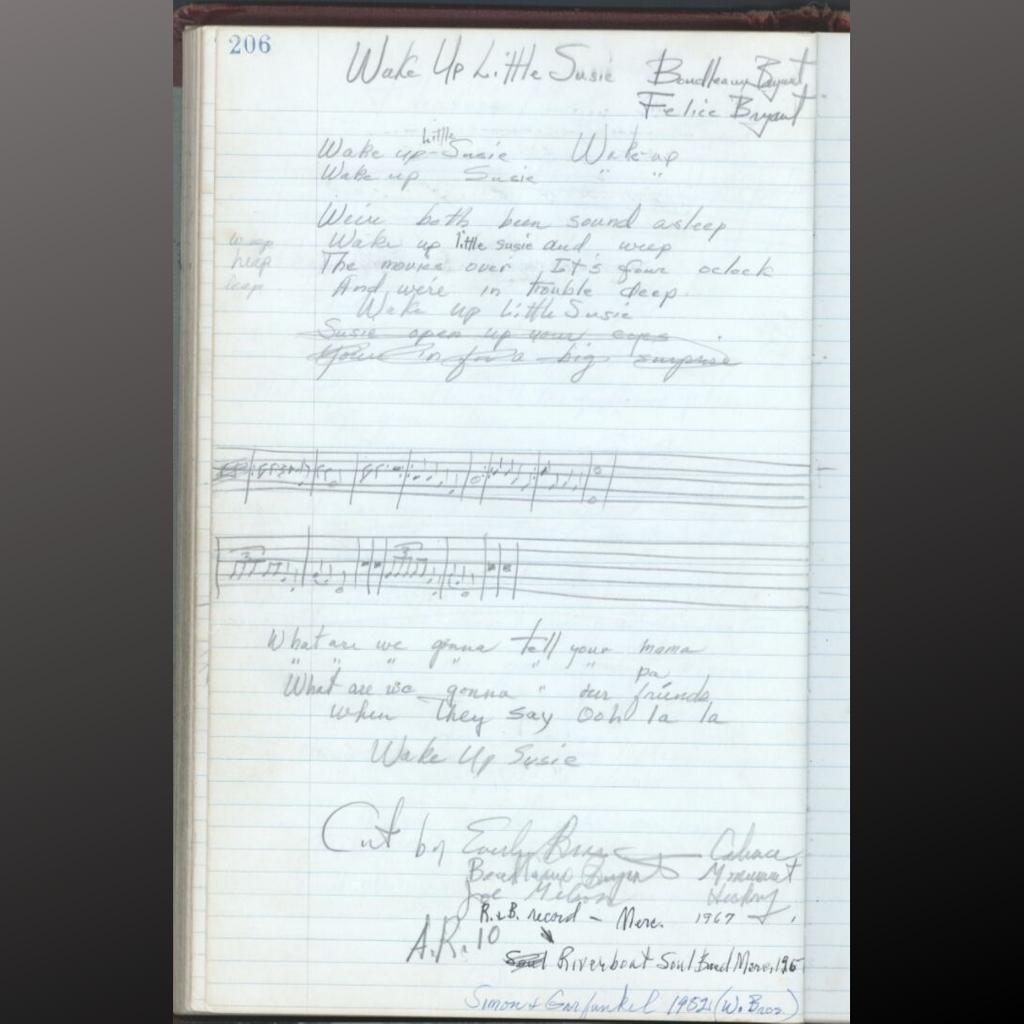 206
Wake Up Little Susie Boudleaux Bryant
Felice Bryant
Little
Wake up Susie Wake up
Wake up Susie " "
We've both been sound asleep
weep Wake up little susie and weep
heap The movies over It's four oclock
leap And we're in trouble deep
Wake Up Little Susie
Susie open up your eyes
Your in for a big surprise
3
3
What are we gonna tell your mama
" " " " " " pa
What are we gonna " our friends
When they say Ooh la la
Wake Up Susie
Cut by Everly Bros Cadence
Boudleaux Bryant Monument
Joe Melson Hickory
R.&B. record – Merc. 1967
A.R. 10
Soul Riverboat Soul Band Merc. 196
Simon & Garfunkel 1982 (W. Bros.)